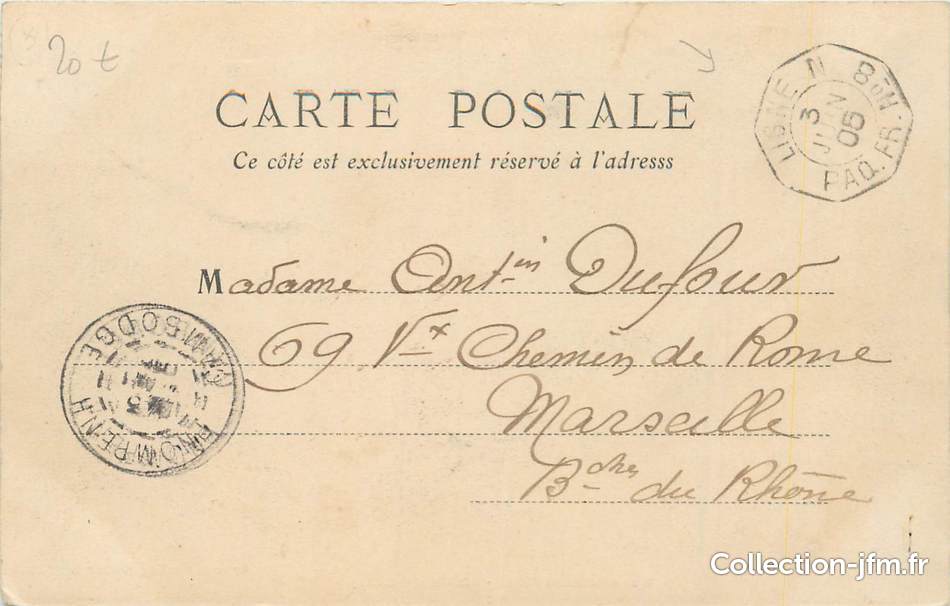 20 t
CARTE POSTALE
Ce côté est exclusivement réservé à l'adresss
LIGNE N
PAQ. FR.
3
JUIN
05
Madame Ant-in Dufour
69 Vx Chemin de Rome
Marseille
B-ches du Rhône
PNOMPENH
CAMBODGE
Collection-jfm.fr